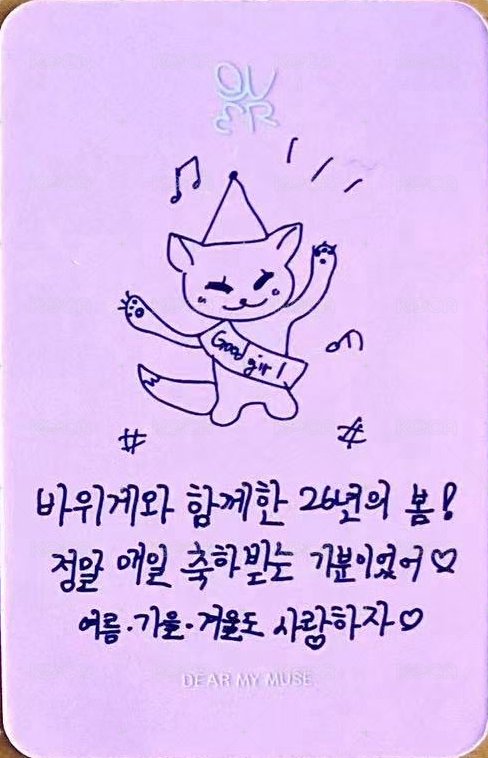 OV
ER
Good
girl
바위게와 함께한 26년의 봄!
정말 매일 축하받는 기분이었어♡
여름·가을·겨울도 사랑하자♡
DEAR MY MUSE